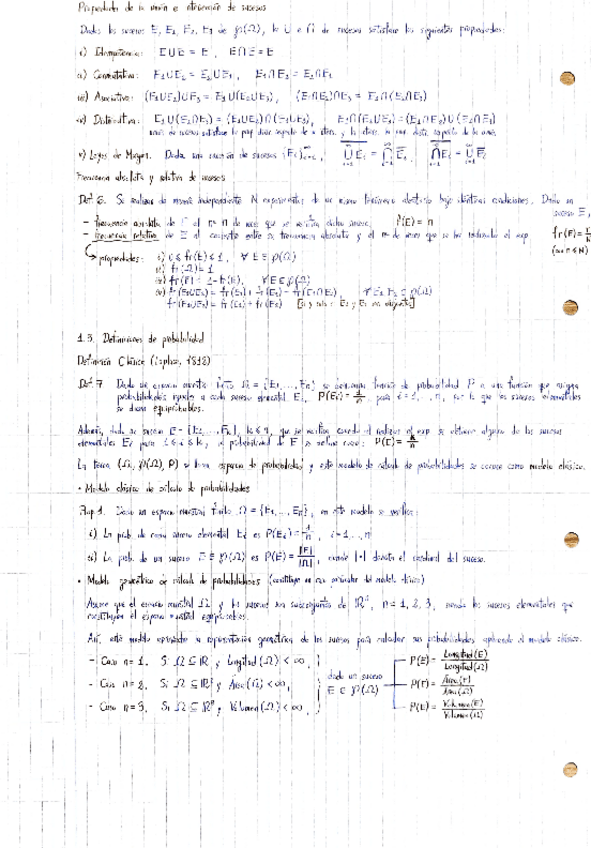 Propiedades de la unión e intersección de sucesos
Dados los sucesos E, E₁, E₂, E₃ de ℘(Ω), la ∪ e ∩ de sucesos satisfacen las siguientes propiedades:
i) Idempotencia: E∪E = E, E∩E = E
ii) Conmutativa: E₁∪E₂ = E₂∪E₁, E₁∩E₂ = E₂∩E₁
iii) Asociativa: (E₁∪E₂)∪E₃ = E₁∪(E₂∪E₃), (E₁∩E₂)∩E₃ = E₁∩(E₂∩E₃)
iv) Distributiva: E₁∪(E₂∩E₃) = (E₁∪E₂)∩(E₁∪E₃), E₁∩(E₂∪E₃) = (E₁∩E₂)∪(E₁∩E₃)
v) Leyes de Morgan. Dada una sucesión de sucesos {Eᵢ}
Frecuencia absoluta y relativa de sucesos
Def 6. Se realizan de manera independiente N experimentos de un mismo fenómeno aleatorio bajo idénticas condiciones. Dado un suceso E,
- frecuencia absoluta de E al nº n de veces que se realiza dicho suceso,
- frecuencia relativa de E al cociente entre su frecuencia absoluta y el nº de veces que se ha realizado el exp.
propiedades: i) 0 ≤ fr(E) ≤ 1, ∀ E ∈ ℘(Ω)
ii) fr(Ω) = 1
iii) fr(E̅) = 1 - fr(E), ∀ E ∈ ℘(Ω)
iv) fr(E₁∪E₂) = fr(E₁) + fr(E₂) - fr(E₁∩E₂), ∀ E₁, E₂ ∈ ℘(Ω)
fr(E₁∪E₂) = fr(E₁) + fr(E₂)
1.3. Definiciones de probabilidad
Definición Clásica (Laplace, 1812)
Def 7. Dado un espacio muestral finito Ω = {E₁,...,Eₙ} se denomina función de probabilidad P a una función que asigna
probabilidades iguales a cada suceso elemental Eᵢ, P(Eᵢ) = 1/n, para i = 1,...,n, por lo que los sucesos elementales
se dicen equiprobables.
Además, dado un suceso E = {E₁,...,Eₖ}, k ≤ n, que se verifica cuando al realizar el exp. se obtiene alguno de los sucesos
elementales Eᵢ para 1 ≤ i ≤ k, la probabilidad de E se define como: P(E) = k/n
La terna (Ω, ℘(Ω), P) se llama espacio de probabilidad y este modelo de cálculo de probabilidades se conoce como modelo clásico.
• Modelo clásico de cálculo de probabilidades
Prop 1. Dado un espacio muestral finito Ω = {E₁,...,Eₙ}, en este modelo se verifica:
i) La prob. de cada suceso elemental Eᵢ es P(Eᵢ) = 1/n, i = 1,...,n
ii) La prob. de un suceso E ∈ ℘(Ω) es P(E) = |E|/|Ω|, donde |•| denota el cardinal del suceso.
• Modelo geométrico de cálculo de probabilidades (constituye un caso particular del modelo clásico)
Asume que el espacio muestral Ω y los sucesos son subconjuntos de ℝⁿ, n = 1, 2, 3, siendo los sucesos elementales que
constituyen el espacio muestral equiprobables.
Así, este modelo aprovecha la representación geométrica de los sucesos para calcular sus probabilidades aplicando el modelo clásico.
- Caso n = 1. Si Ω ⊆ ℝ y Longitud(Ω) < ∞, P(E) = Longitud(E)/Longitud(Ω)
- Caso n = 2. Si Ω ⊆ ℝ² y Área(Ω) < ∞, dado un suceso E ∈ ℘(Ω) P(E) = Área(E)/Área(Ω)
- Caso n = 3. Si Ω ⊆ ℝ³ y Volumen(Ω) < ∞, P(E) = Volumen(E)/Volumen(Ω)